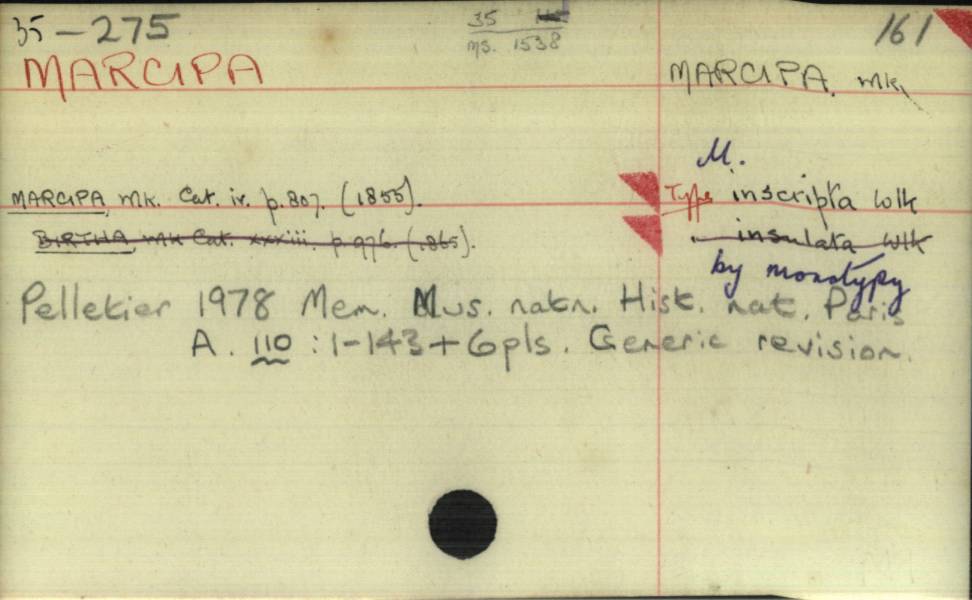 35-275
35
ms. 1538
161
MARCIPA
MARCIPA. Wlk.
M.
MARCIPA, Wlk. Cat. iv. p. 807. (1855).
Type inscripta Wlk
BIRTHA, Wlk Cat. xxxiii. p. 976. (1865).
insulata Wlk
by monotypy
Pelletier 1978 Mem. Mus. natn. Hist. nat. Paris
A. 110 : 1-143 + 6pls. Generic revision.